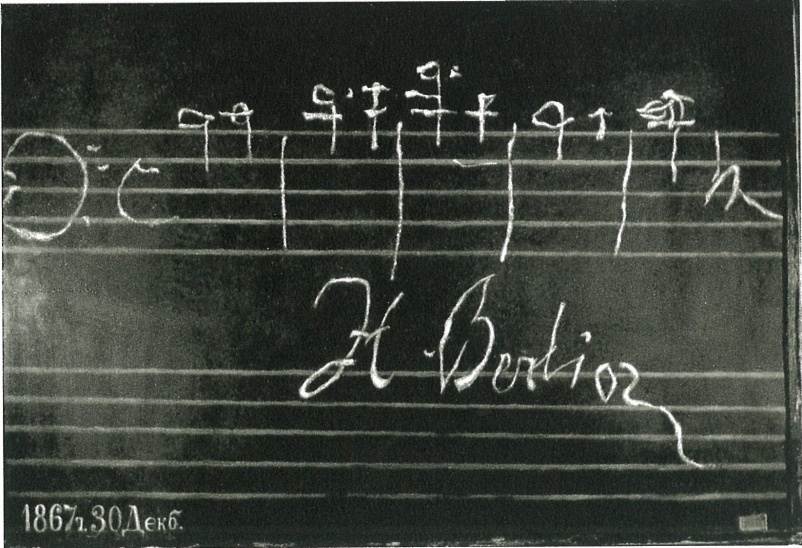 H. Berlioz
1867г. 30 Декб.